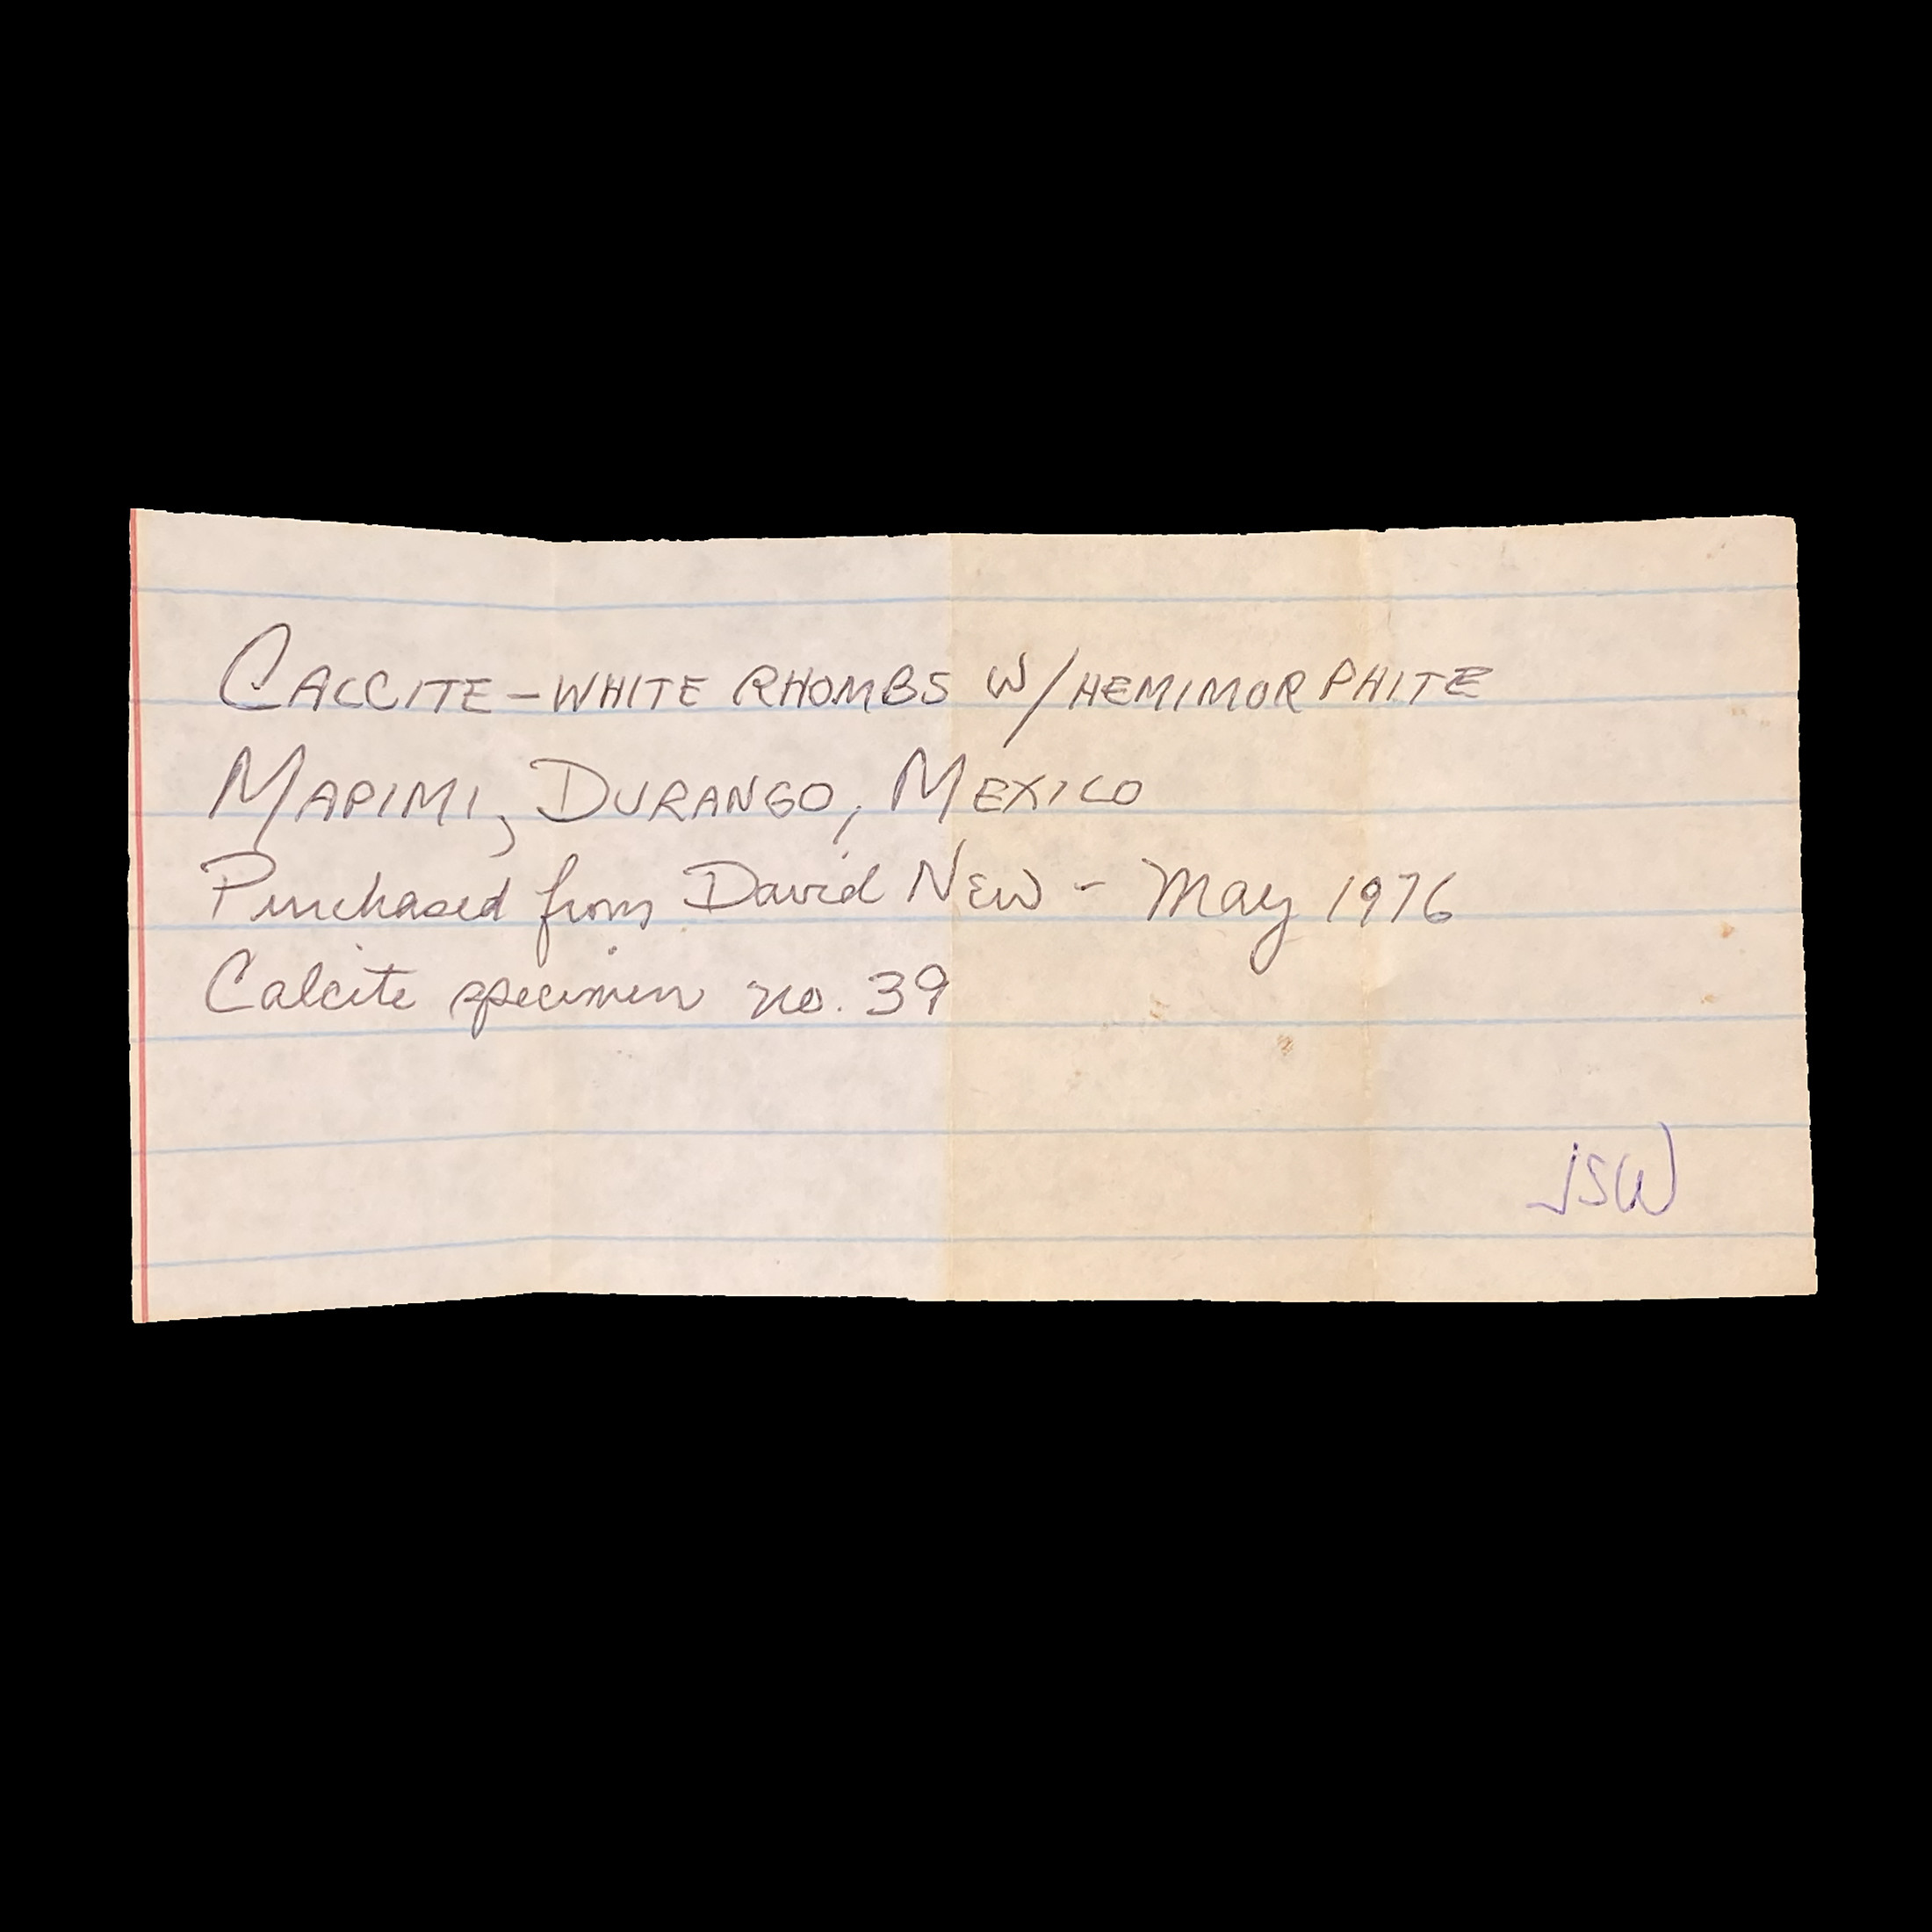 CALCITE - WHITE RHOMBS W/HEMIMORPHITE
MAPIMI, DURANGO, MEXICO
Purchased from David New - May 1976
Calcite specimen no. 39
JSW